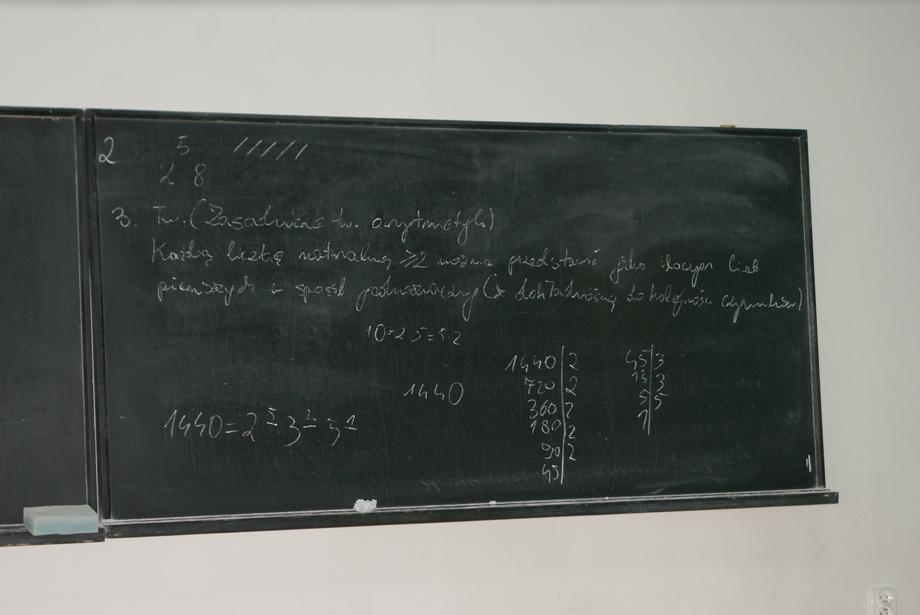 2 5 /////
2 8
3. Tw. (Zasadnicze tw. arytmetyki)
Każdą liczbę naturalną ⩾2 można przedstawić jako iloczyn liczb
pierwszych w sposób jednoznaczny (z dokładnością do kolejności czynników)
10=2·5=5·2
1440
1440=2^5·3^2·5^1
1440|2
720|2
360|2
180|2
90|2
45|
45|3
15|3
5|5
1|